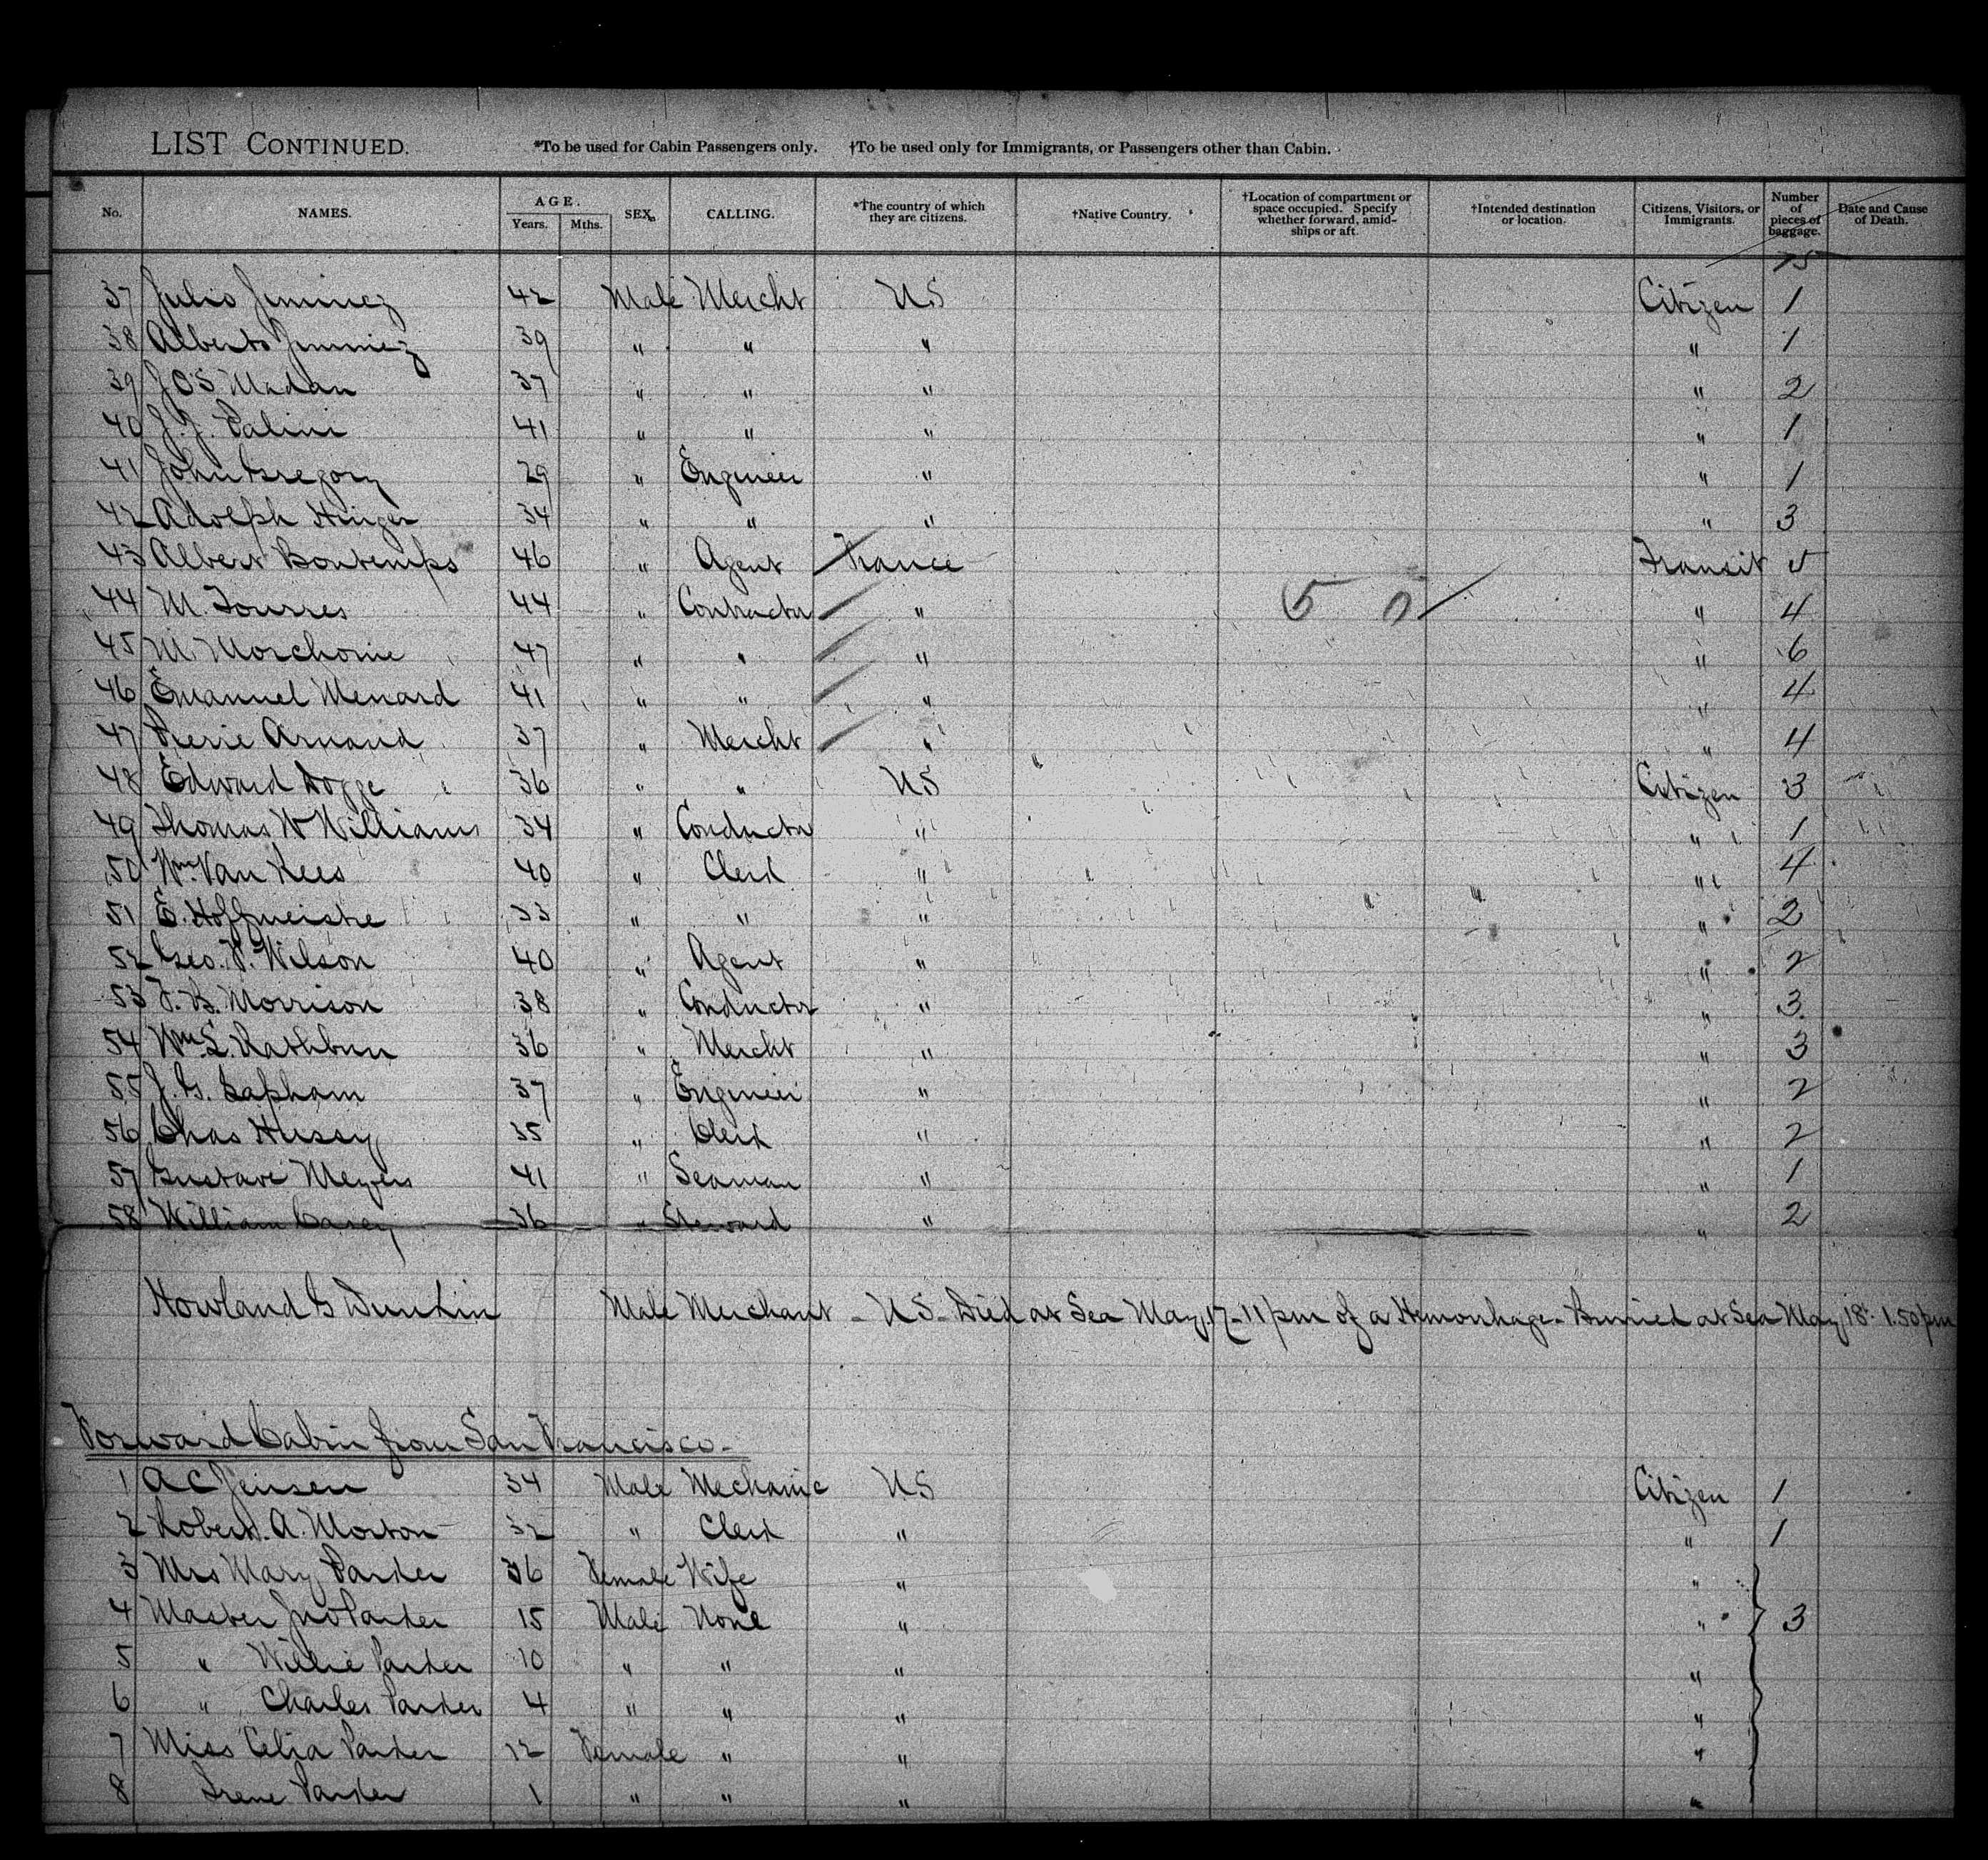 LIST CONTINUED. *To be used for Cabin Passengers only. †To be used only for Immigrants, or Passengers other than Cabin.
No. NAMES. AGE. Years. Mths. SEX. CALLING. *The country of which they are citizens. †Native Country. †Location of compartment or space occupied. Specify whether forward, amidships or aft. †Intended destination or location. Citizens, Visitors, or Immigrants. Number of pieces of baggage. Date and Cause of Death.
75
37 Julio Jiminez 42 Male Mercht US Citizen 1
38 Alberto Jiminez 39 " " " " 1
39 J O S Madan 37 " " " " 2
40 J. J. Palini 41 " " " " 1
41 John Gregory 29 " Engineer " " 1
42 Adolph Hinger 34 " " " " 3
43 Albert Bontemps 46 " Agent France Transit 5
44 M. Tourres 44 " Contractor " 5 0 " 4
45 M. Morchoine 47 " " " " 6
46 Emanuel Menard 41 " " " " 4
47 Pierre Arnaud 37 " Mercht " " 4
48 Edward Dogge 36 " " US Citizen 3
49 Thomas W Williams 34 " Conductor " " 1
50 Wm. Van Rees 40 " Clerk " " 4
51 E. Hoffmeistre 33 " " " " 2
52 Geo. P. Wilson 40 " Agent " " 2
53 F. B. Morrison 38 " Conductor " " 3
54 Wm S. Rathbun 36 " Mercht " " 3
55 J. G. Lapham 37 " Engineer " " 2
56 Chas Hussy 35 " Clerk " " 2
57 Gustave Meyers 41 " Seaman " " 1
58 William Casey 36 " Steward " " 2
Howland G Dunkin Male Merchant - US - Died at Sea May. 17 - 11 pm of a Hemorrhage - Burried at Sea May 18. 1.50 pm
Forward Cabin from San Francisco -
1 A C Jensen 34 Male Mechanic US Citizen 1
2 Robert. A. Morton 32 " Clerk " " 1
3 Mrs Mary Parker 36 Female Wife " "
4 Master Jno Parker 15 Male None " " 3
5 " Willie Parker 10 " " " "
6 " Charles Parker 4 " " " "
7 Miss Celia Parker 12 Female " " "
8 Irene Parker 1 " " " "